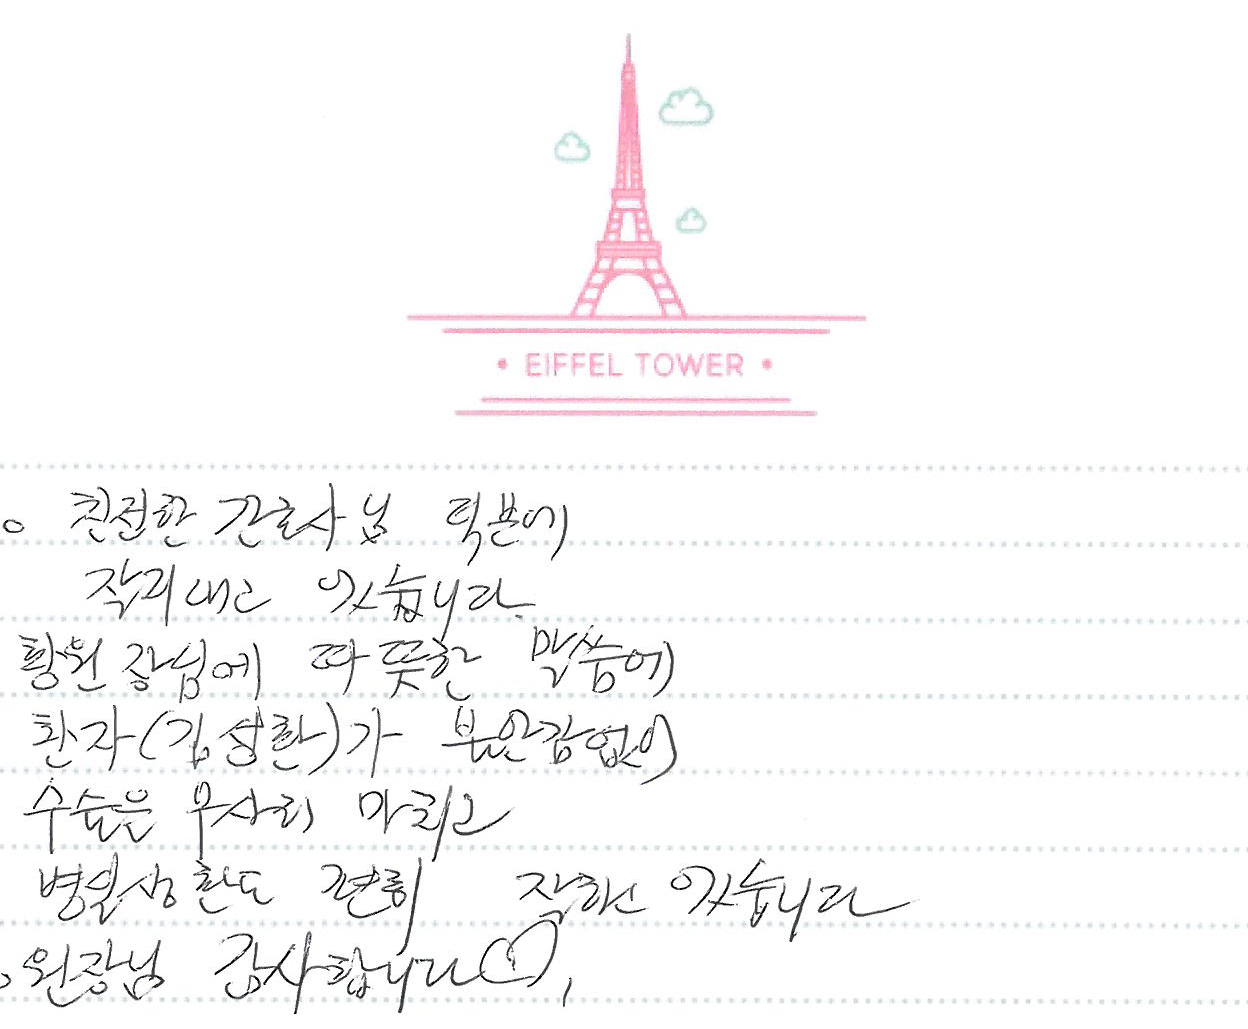 • EIFFEL TOWER •
○ 친절한 간호사님 덕분에
잘지내고 있습니다.
황원장님에 따뜻한 말씀에
환자(김상환)가 불안감없이
수술은 무사히 마치고
병실생활도 편히 잘하고 있습니다
○ 원장님 감사합니다♡,